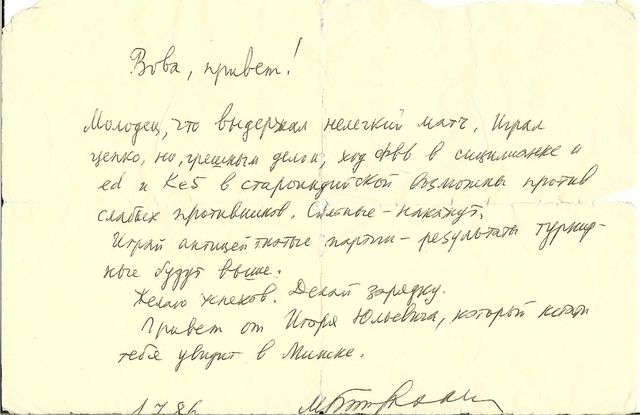 Вова, привет!
Молодец, что выдержал нелегкий матч. Играл
цепко, но, грешным делом, ход Фв6 в сицилианке и
ed и Ке5 в староиндийской возможны против
слабых противников. Сильные – накажут.
Играй партии – результаты турнир-
ные будут выше.
Желаю успехов. Делай зарядку.
Привет от Игоря Юльевича, который кстати
тебя увидит в Минске.
1.7.86